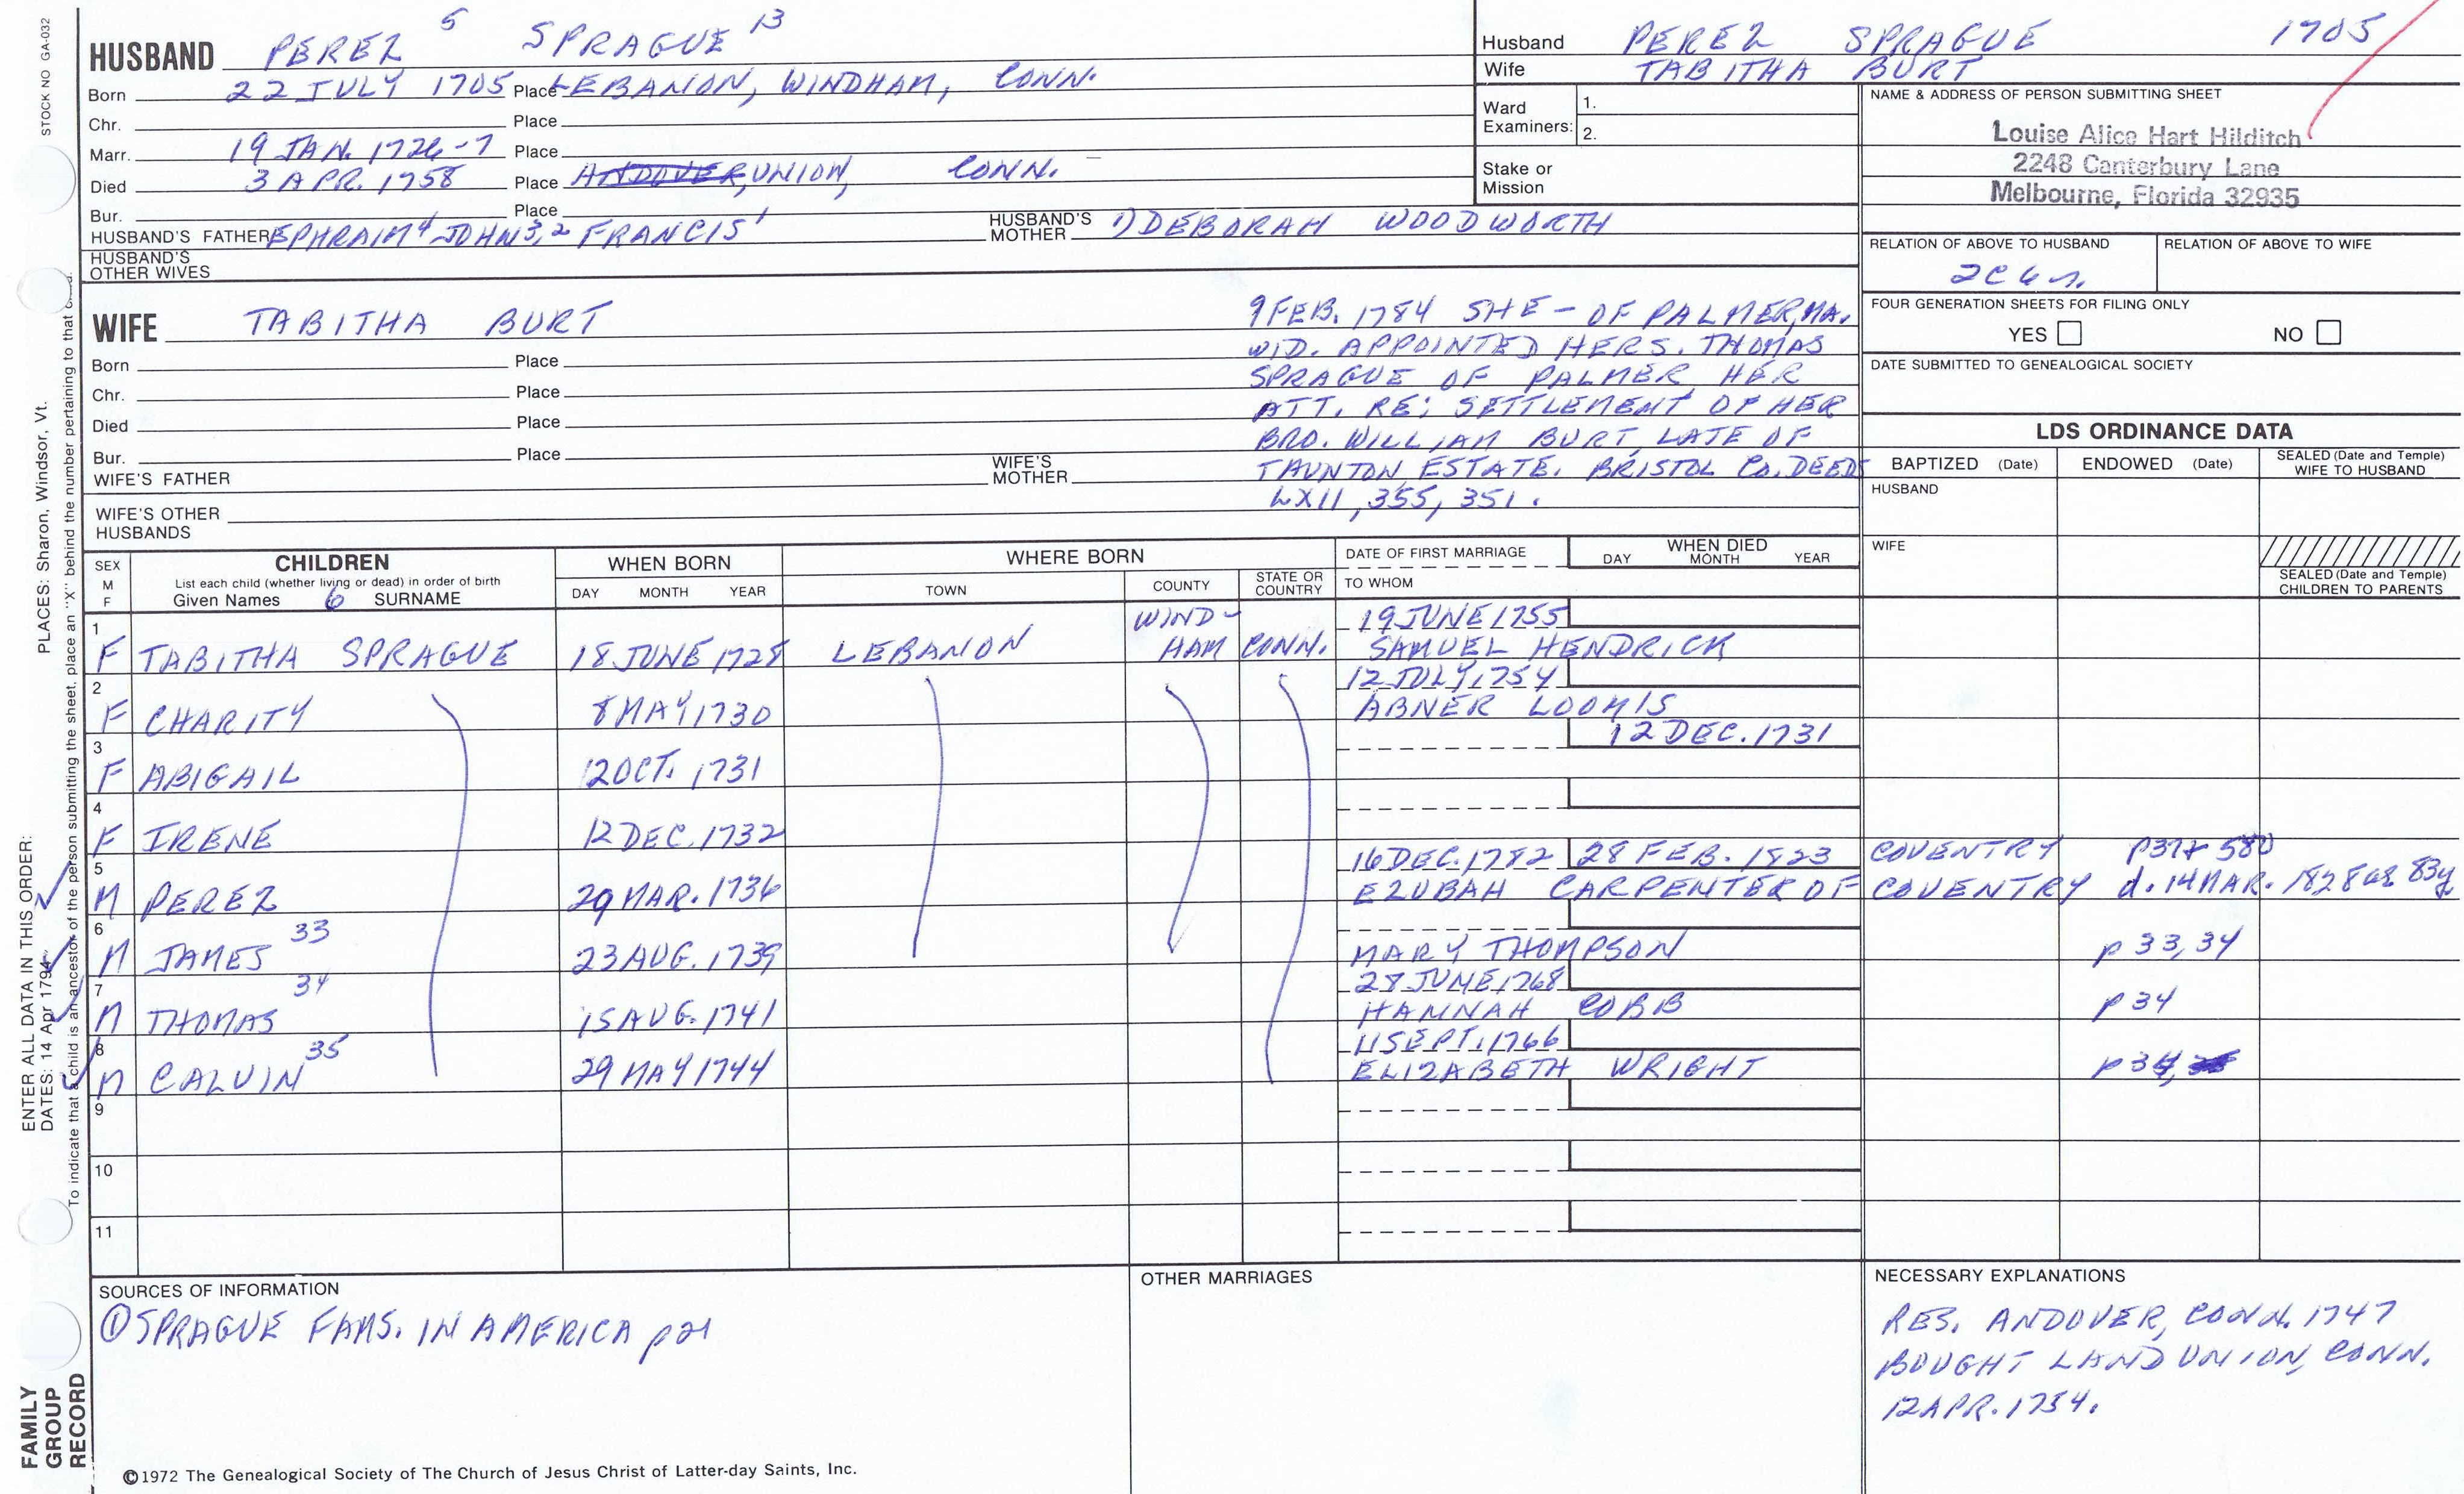 STOCK NO GA-032
HUSBAND PEREZ 5 SPRAGUE 13
Born 22 JULY 1705 Place LEBANON, WINDHAM, CONN.
Chr. Place
Marr. 19 JAN. 1726-7 Place
Died 3 APR. 1758 Place ANDOVER, UNION, CONN.
Bur. Place
HUSBAND'S FATHER EPHRAIM 4 JOHN 3,2 FRANCIS 1 HUSBAND'S MOTHER 1) DEBORAH WOODWORTH
HUSBAND'S OTHER WIVES
Husband PEREZ SPRAGUE 1705
Wife TABITHA BURT
Ward Examiners: 1.
2.
Stake or Mission
NAME & ADDRESS OF PERSON SUBMITTING SHEET
Louise Alice Hart Hilditch
2248 Canterbury Lane
Melbourne, Florida 32935
RELATION OF ABOVE TO HUSBAND RELATION OF ABOVE TO WIFE
2C 6 n.
FOUR GENERATION SHEETS FOR FILING ONLY
YES NO
DATE SUBMITTED TO GENEALOGICAL SOCIETY
WIFE TABITHA BURT
Born Place
Chr. Place
Died Place
Bur. Place
WIFE'S FATHER WIFE'S MOTHER
WIFE'S OTHER HUSBANDS
9 FEB. 1784 SHE - OF PALMER, MA.
WID. APPOINTED HER S. THOMAS
SPRAGUE OF PALMER HER
ATT. RE: SETTLEMENT OF HER
BRO. WILLIAM BURT, LATE OF
TAUNTON, ESTATE. BRISTOL CO. DEEDS
LXII, 355, 351.
LDS ORDINANCE DATA
BAPTIZED (Date) ENDOWED (Date) SEALED (Date and Temple) WIFE TO HUSBAND
HUSBAND
WIFE
SEALED (Date and Temple) CHILDREN TO PARENTS
SEX M F CHILDREN WHEN BORN WHERE BORN DATE OF FIRST MARRIAGE WHEN DIED
List each child (whether living or dead) in order of birth DAY MONTH YEAR
Given Names 6 SURNAME DAY MONTH YEAR TOWN COUNTY STATE OR COUNTRY TO WHOM
1 WIND- 19 JUNE 1755
F TABITHA SPRAGUE 18 JUNE 1728 LEBANON HAM CONN. SAMUEL HENDRICK
2 12 JULY 1754
F CHARITY 8 MAY 1730 ABNER LOOMIS
3 12 DEC. 1731
F ABIGAIL 12 OCT. 1731
4
F IRENE 12 DEC. 1732
5 16 DEC. 1782 28 FEB. 1823 COVENTRY 580
M PEREZ 29 MAR. 1736 EZUBAH CARPENTER OF COVENTRY d. 14 MAR. 1828 ae 83y
6
M JAMES 33 23 AUG. 1739 MARY THOMPSON p 33, 34
7 28 JUNE 1768
M THOMAS 34 15 AUG. 1741 HANNAH COBB p 34
8 11 SEPT. 1766
M CALVIN 35 29 MAY 1744 ELIZABETH WRIGHT p 34,
9
10
11
SOURCES OF INFORMATION
① SPRAGUE FAMS. IN AMERICA p 21
OTHER MARRIAGES
NECESSARY EXPLANATIONS
RES. ANDOVER, CONN. 1747
BOUGHT LAND UNION, CONN.
12 APR. 1754.
©1972 The Genealogical Society of The Church of Jesus Christ of Latter-day Saints, Inc.
ENTER ALL DATA IN THIS ORDER:
PLACES: Sharon, Windsor, Vt.
DATES: 14 Apr 1794
To indicate that a child is an ancestor of the person submitting the sheet, place an "X" behind the number pertaining to that
FAMILY GROUP RECORD